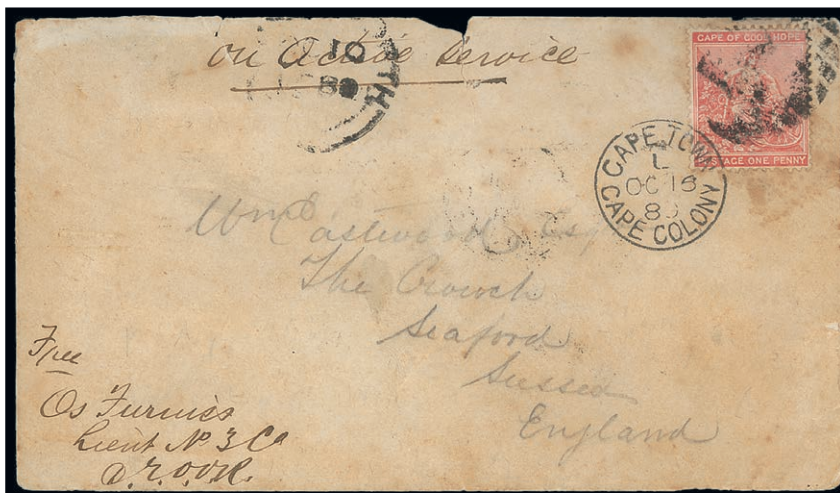 on Active Service
TH
10
CAPE OF GOOD HOPE
POSTAGE ONE PENNY
CAPE TOWN
L
OC 16
CAPE COLONY
Wm Eastwood Esq
The Crouch
Seaford
Sussex
England
Free
Os Furniss
Lieut No 3 Co